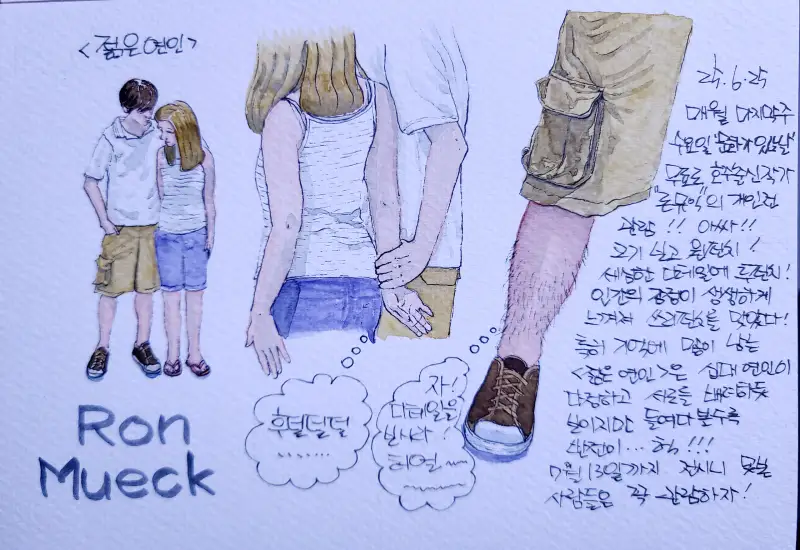 <젊은연인>
Ron
Mueck
후덜덜덜
.......
자!
디테일을
봐봐라!
헤열~~
25. 6. 25
매월 마지막주
수요일 "문화가있는날"
무료로 호주출신작가
"론뮤익"의 개인전
관람!! 아싸!!
크기 원펀치!
세심한 디테일에 투펀치!
인간의 감정이 생생하게
느껴져 쓰리펀치를 맞았다!
특히 기억에 많이 남는
<젊은 연인>은 십대 연인이
다정하고 서로를 배려하듯
보이지만 들여다볼수록
반전이... 헉!!!
7월 13일까지 전시니 못본
사람들은 꼭 관람하자!